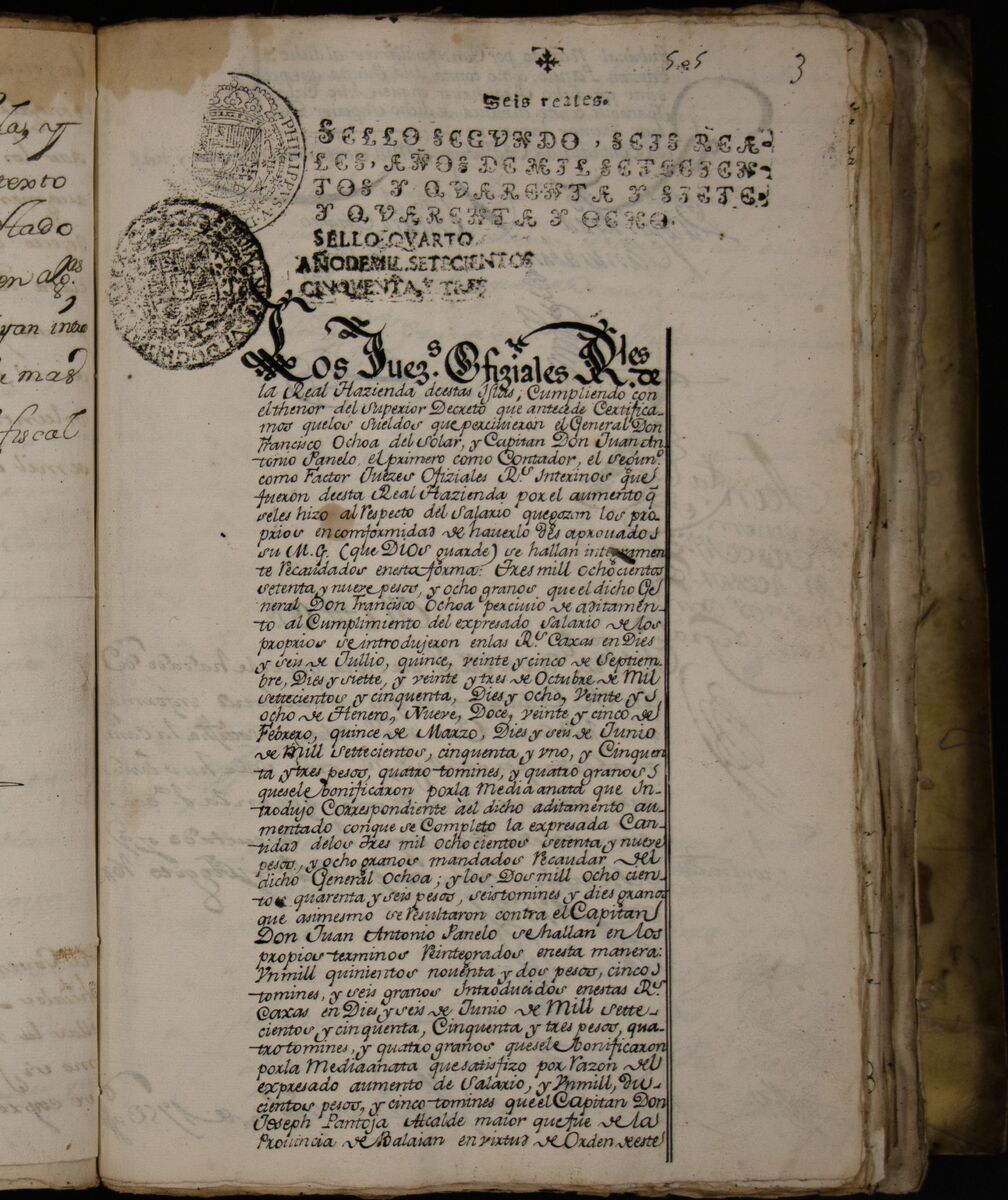 la, y
texto
stado
en algs.
yan intro
mas
fiscal
505
3
Seis reales.
SELLO SEGVNDO, SEIS REA-
LES, AÑOS DE MIL SETECIEN-
TOS Y QVARENTA Y SIETE
Y QVARENTA Y OCHO.
PHILIPPVS V
SELLO QVARTO
AÑODEMIL.SETECIENTOS
CINQUENTA,Y TRES
Los Juezs. Ofiziales Rles. de
la Real Hazienda deestas Islas; Cumpliendo con
el thenor del Superior Decreto que antecede Certifica-
mos quelos sueldos que percivieron el General Don
Francisco Ochoa del Solar, y Capitan Don Juan An
tonio Panelo, el primero como Contador, el segundo.
como Factor Juezes Ofiziales Rs. Interinos que
fueron deesta Real Hazienda por el aumento q̃
seles hizo al respecto del Salario quegozan los pro-
prios en comformidad de haverlo des aprovado
su M.G. (que DIOS guarde) se hallan integramen
te recaudados enesta forma: Tres mill ochocientos
setenta y nueve pesos, y ocho granos, que el dicho Ge
neral Don Francisco Ochoa percivio de aditamen-
to al Cumplimiento del expresado Salario de los
proprios se introdujeron enlas Rs. Caxas en Dies
y seis de Jullio, quince, veinte y cinco de Septiem-
bre, Dies y siette, y veinte y tres de Octubre de Mil
settecientos y cinquenta, Dies y ocho, Veinte y
ocho de Henero, Nueve, Doce, veinte y cinco de
Febrero, quince de Marzo, Dies y seis de Junio
de Mill settecientos, cinquenta y vno, y Cinquen
ta y tres pesos, quatro tomines, y quatro granos
quesele bonificaron porla Media anata que In-
trodujo Correspondiente ael dicho aditamento au-
mentado conque se Completo la expresada Can-
tidad delos Tres mil ochocientos setenta y nueve
pesos, y ocho granos mandados recaudar del
dicho General Ochoa; y los Dos mill ocho cien-
tos quarenta y seis pesos, seis tomines y dies granos
que asimesmo se resultaron contra el Capitan
Don Juan Antonio Panelo se hallan en los
propios terminos reintegrados enesta manera:
Vn mill quinientos noventa y dos pesos, cinco
tomines, y seis granos Introducidos enestas Rs.
Caxas en Dies y seis de Junio de Mill sette-
cientos y cinquenta, Cinquenta y tres pesos, qua-
tro tomines, y quatro granos quesele bonificaron
porla Mediaanata que satisfizo por razon del
expresado aumento de Salario, y Vn mill, du-
cientos pesos, y cinco tomines que el Capitan Don
Joseph Pantoja Alcalde maior que fue de la
Provincia de Balaian en virtud de Orden deeste